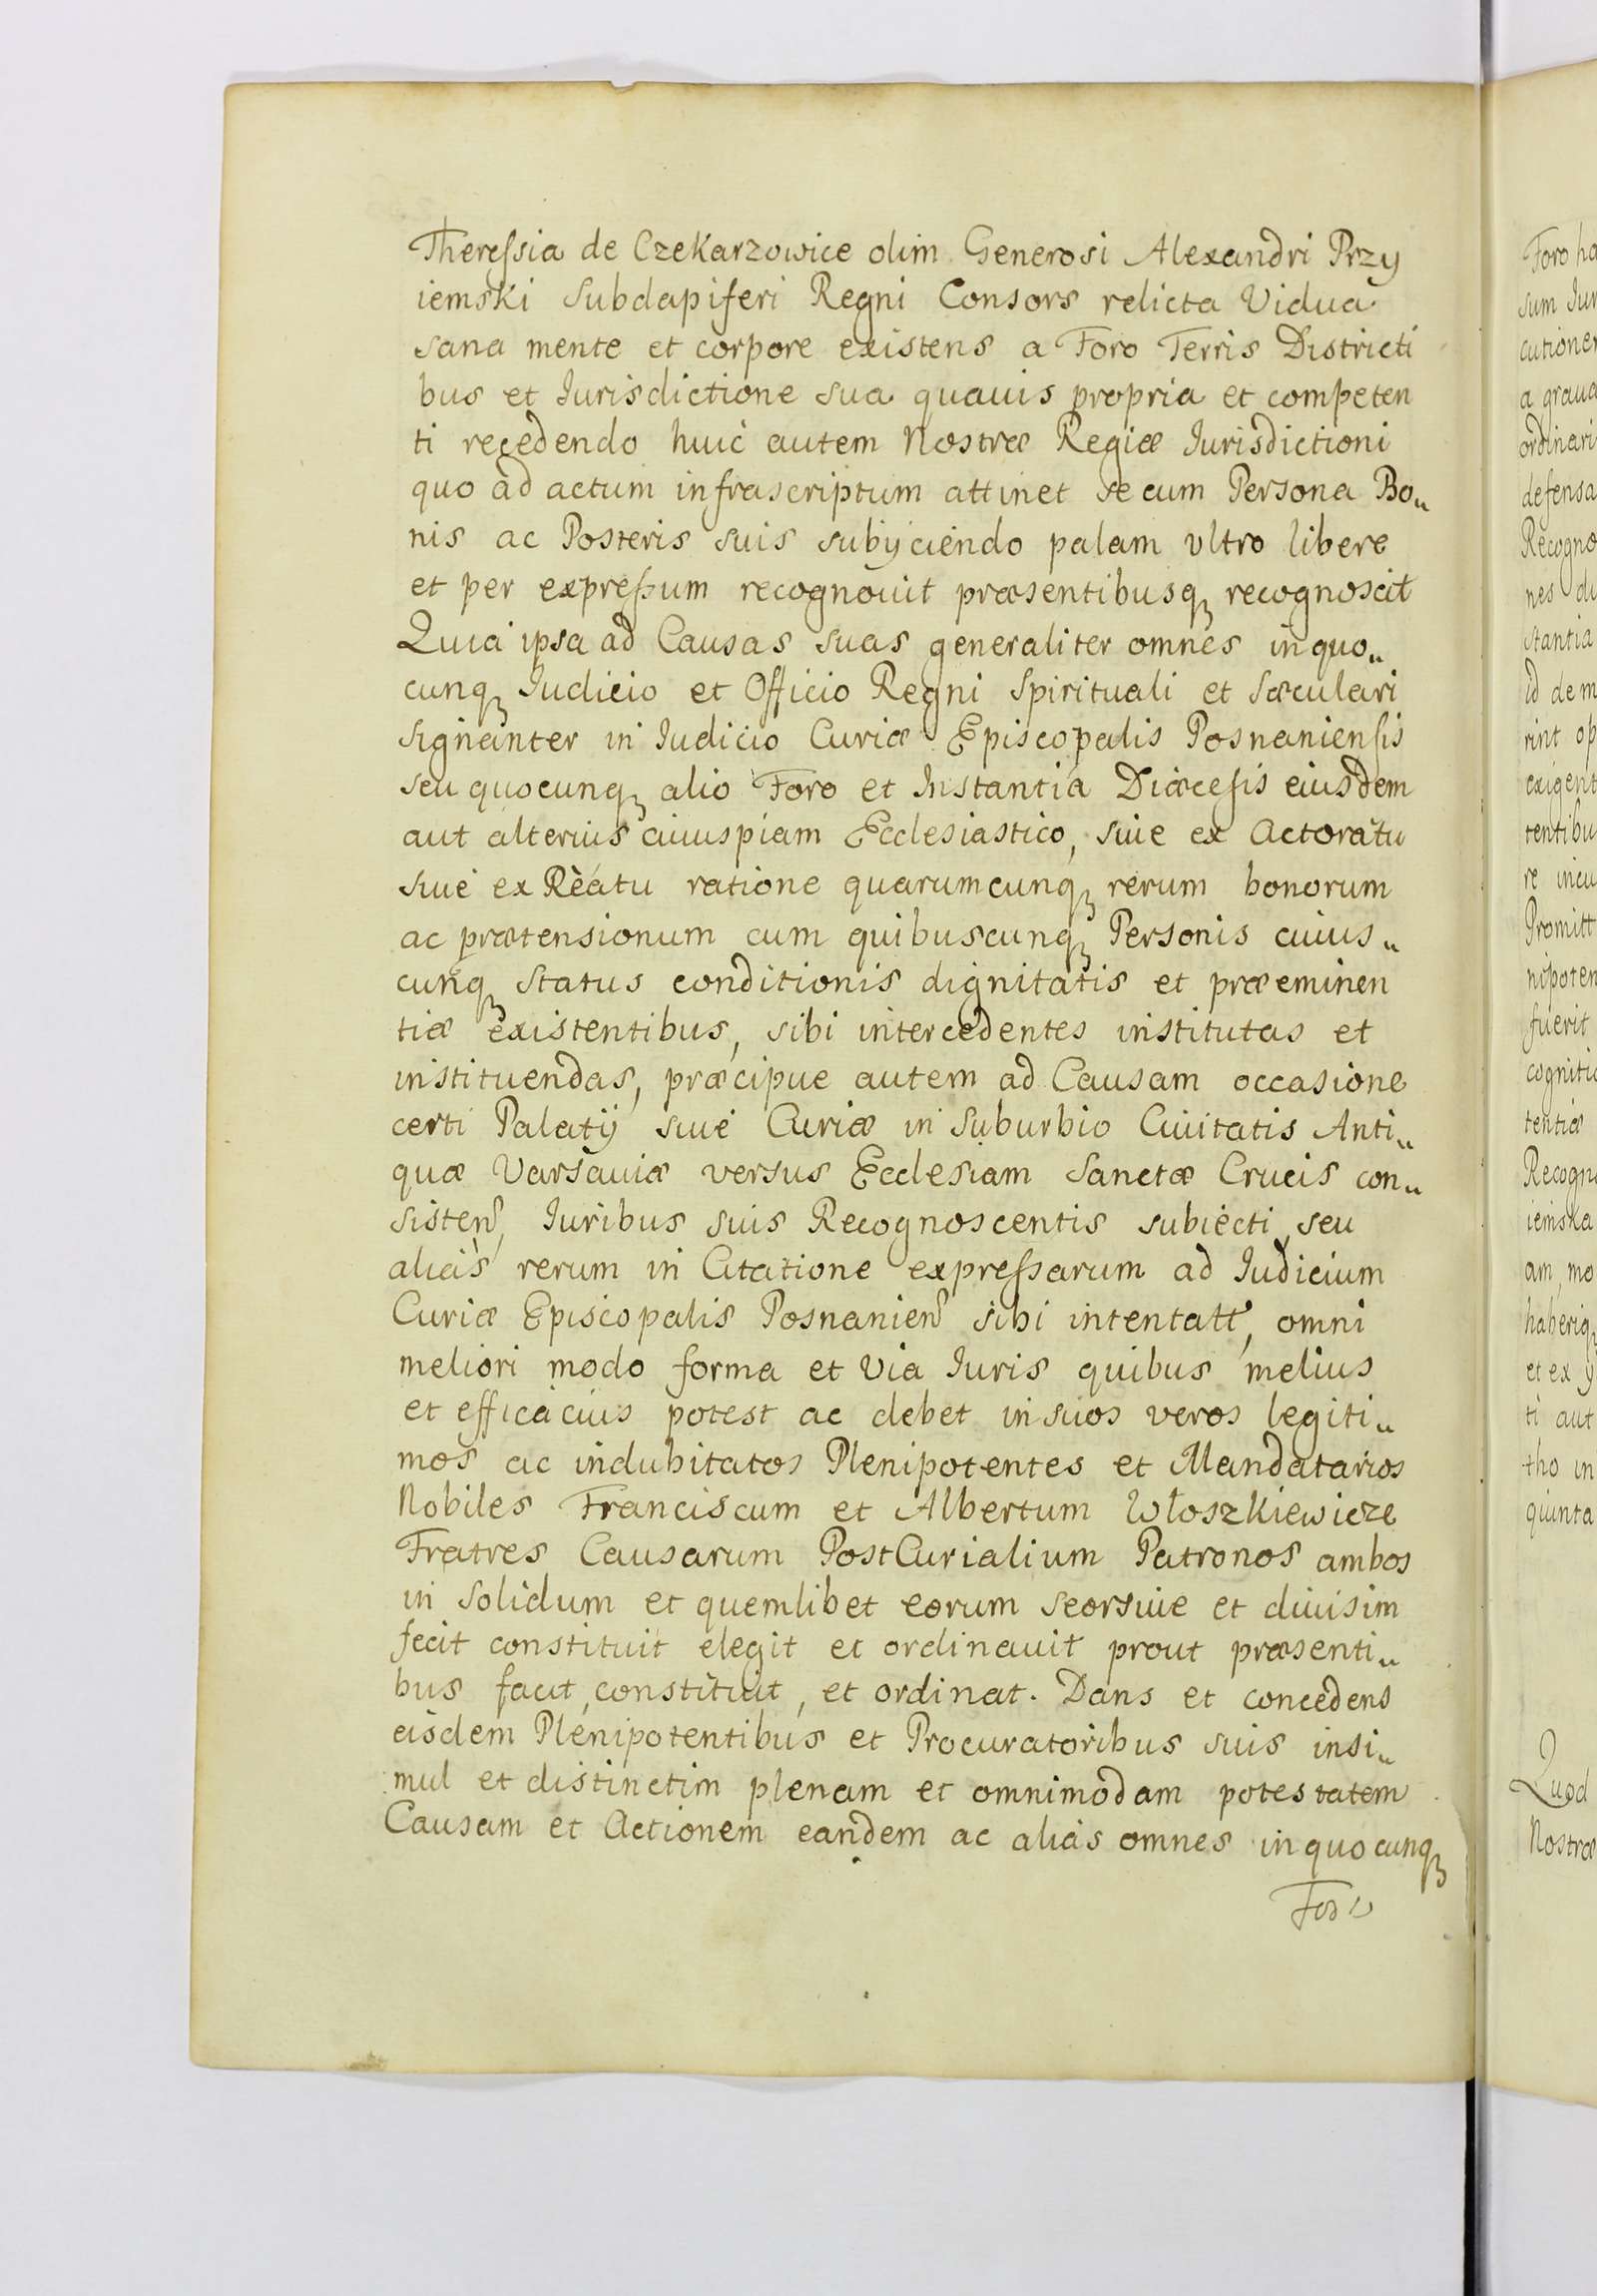 Theressia de Czekarzowice olim Generosi Alexandri Przy
iemski Subdapiferi Regni Consors relicta Vidua
sana mente et corpore existens a Foro Terris Districti
bus et Iurisdictione sua quauis propria et competen
ti recedendo huic autem Nostræ Regiæ Iurisdictioni
quo ad actum infrascriptum attinet se cum Persona Bo„
nis ac Posteris suis subijciendo palam vltro libere
et per expressum recognouit præsentibusq recognoscit
Quia ipsa ad Causas suas generaliter omnes in quo„
cunq Iudicio et Officio Regni Spirituali et Sæculari
signanter in Iudicio Curiæ Episcopalis Posnaniensis
seu quocunq alio Foro et Instantia Diæcesis eiusdem
aut alterius cuiuspiam Ecclesiastico, siue ex Actoratu
siue ex Reatu ratione quarumcunq rerum bonorum
ac prætensionum cum quibuscunq Personis cuius„
cunq Status conditionis dignitatis et præeminen
tiæ existentibus, sibi intercedentes institutas et
instituendas, præcipue autem ad Causam occasione
certi Palatij siue Curiæ in Suburbio Ciuitatis Anti„
quæ Varsauiæ versus Ecclesiam Sanctæ Crucis con„
sisten, Iuribus suis Recognoscentis subiecti, seu
alias rerum in Citatione expressarum ad Iudicium
Curiæ Episcopalis Posnanien sibi intentatt, omni
meliori modo forma et Via Iuris quibus melius
et efficacius potest ac debet in suos veros legiti„
mos ac indubitatos Plenipotentes et Mandatarios
Nobiles Franciscum et Albertum Włoszkiewicze
Fratres Causarum PostCurialium Patronos ambos
in solidum et quemlibet eorum seorsiue et diuisim
fecit constituit elegit et ordinauit prout præsenti„
bus facit, constituit, et ordinat. Dans et concedens
eisdem Plenipotentibus et Procuratoribus suis insi„
mul et distinctim plenam et omnimodam potestatem
Causam et Actionem eandem ac alias omnes in quocunq
Foro
Foro ha
sum Iur
cutione
a graua
ordinari
defensa
Recogno
nes du
stantia
id dem
rint op
exigent
tentibu
re incu
Promitt
nipoten
fuerit
cognitio
tentiæ
Recogn
iemska
am, mo
haberiq
et ex
ti aut
tho in
quinta
Quod
Nostræ